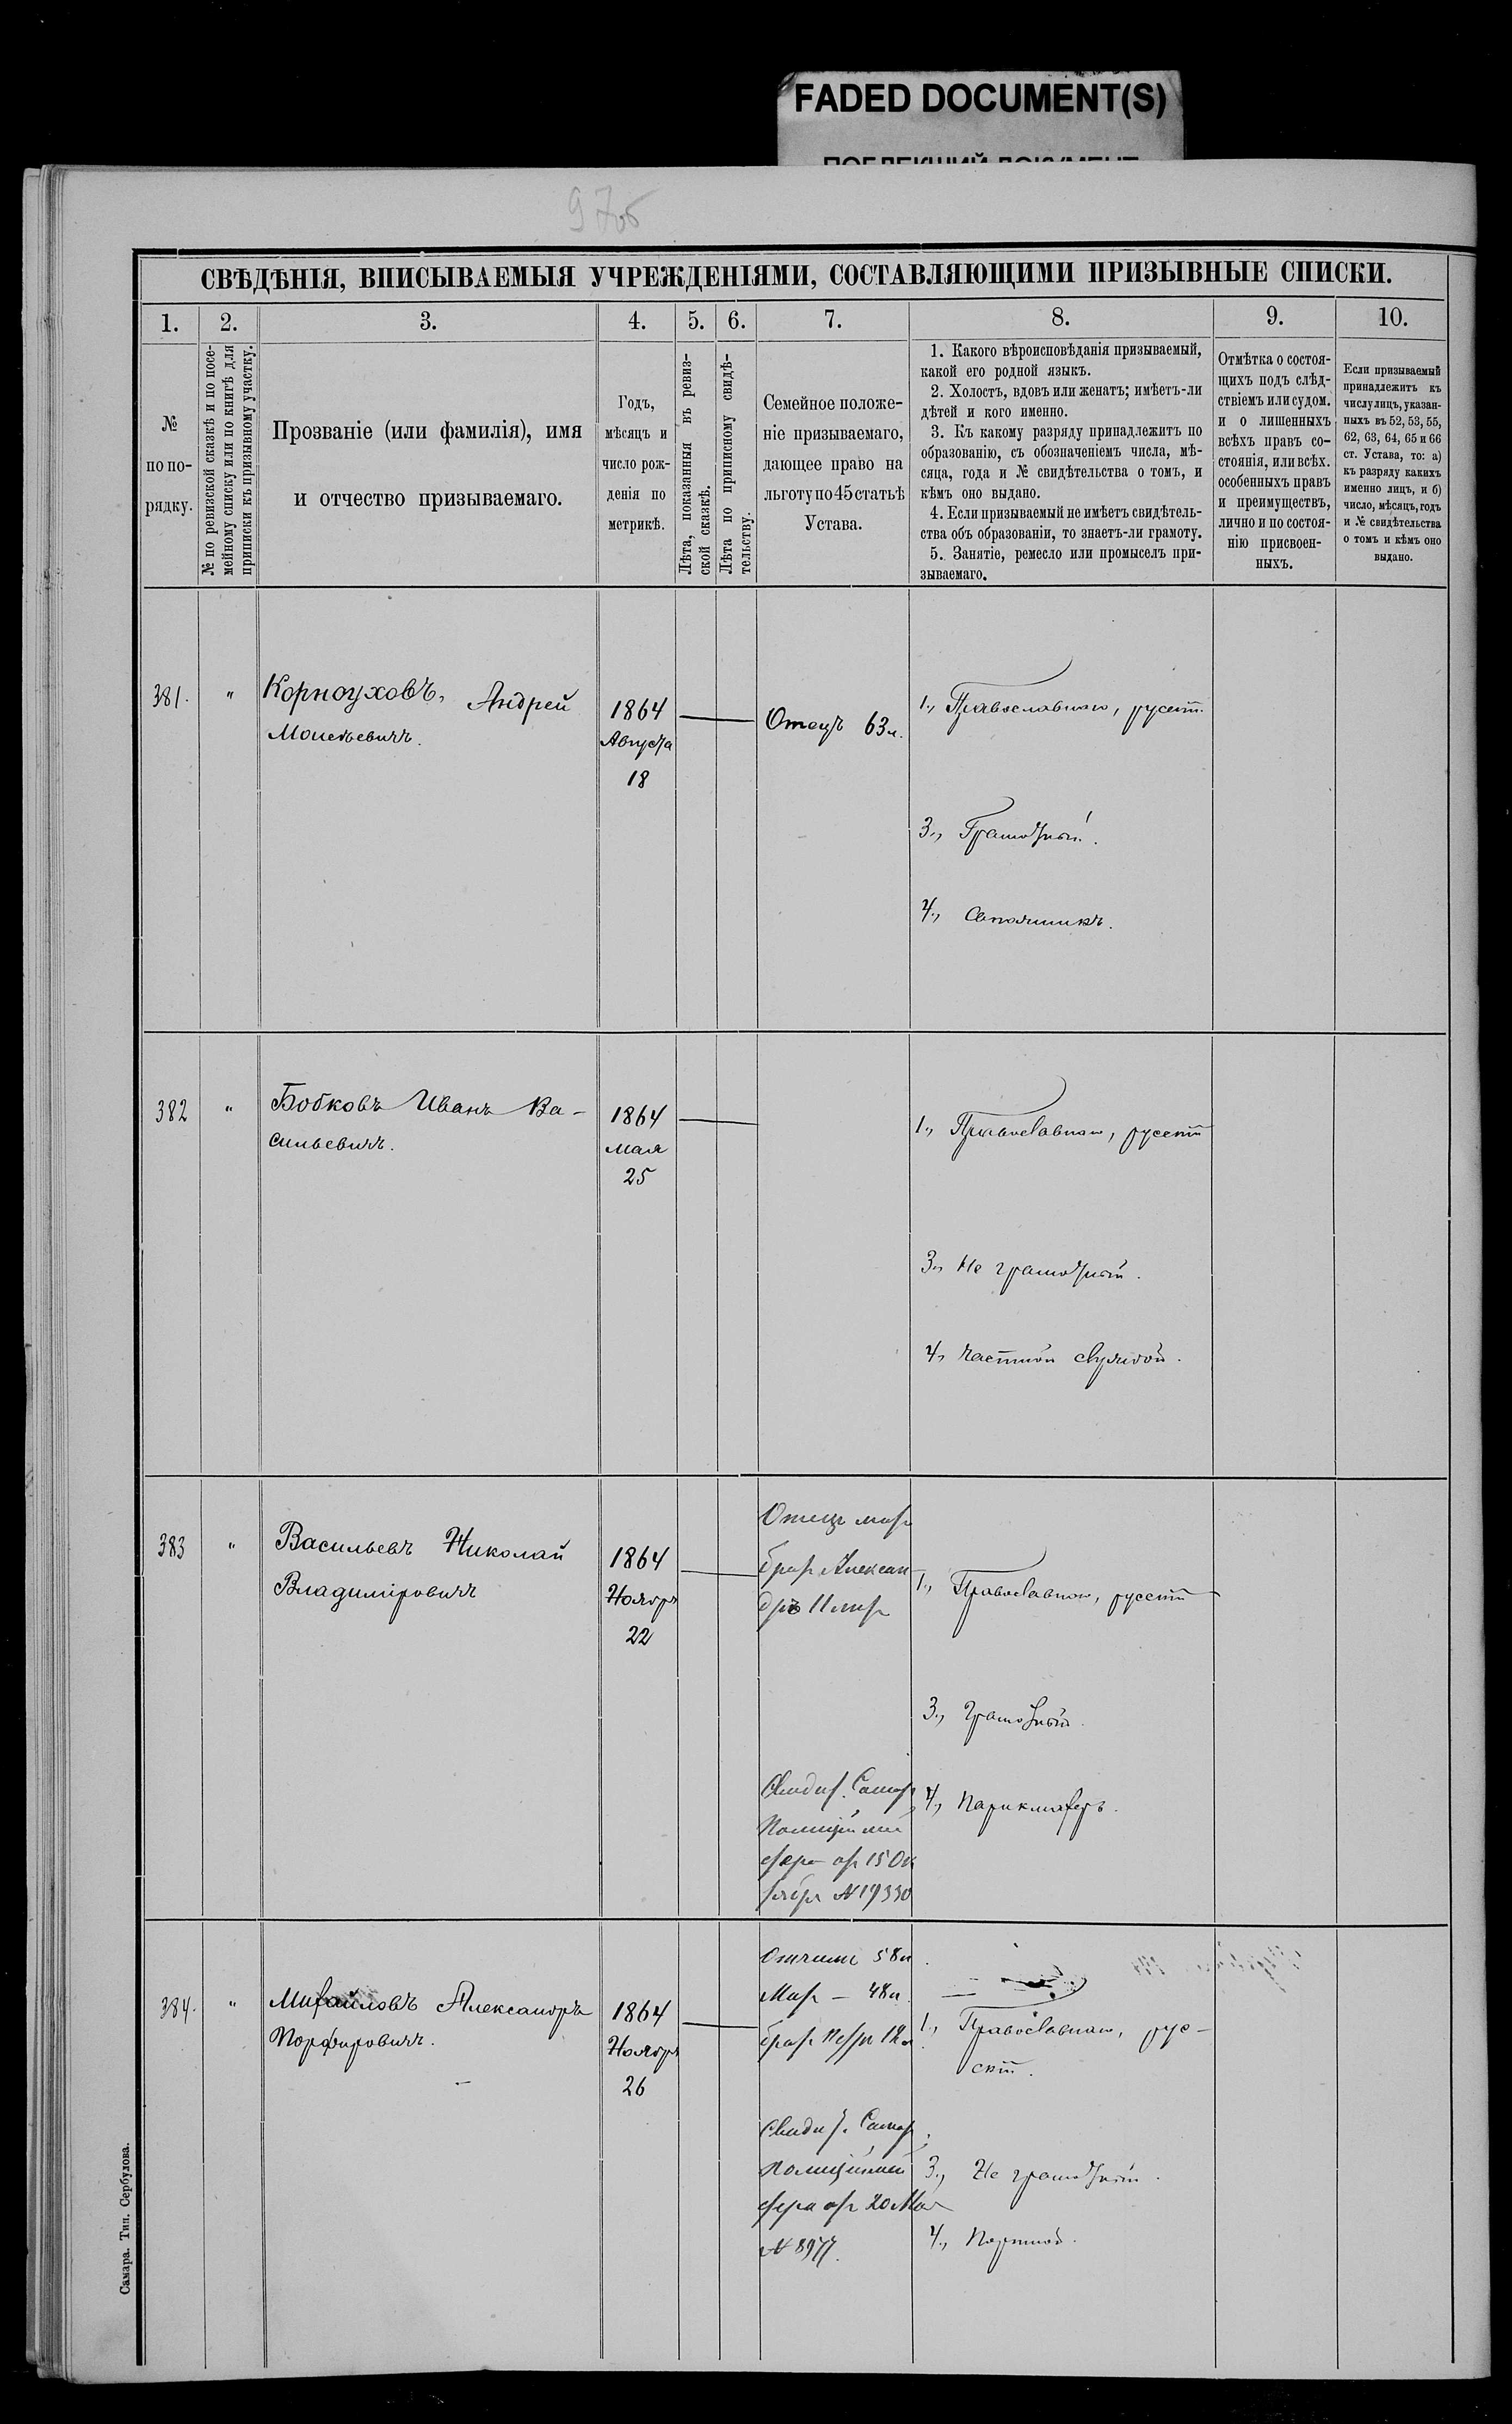 FADED DOCUMENT(S)
ПОБЛЕКШИЙ ДОКУМЕНТ
97об
СВѢДѢНІЯ, ВПИСЫВАЕМЫЯ УЧРЕЖДЕНІЯМИ, СОСТАВЛЯЮЩИМИ ПРИЗЫВНЫЕ СПИСКИ.
1. 2. 3. 4. 5. 6. 7. 8. 9. 10.
№
по по-
рядку.
№ по ревизской сказкѣ и по посе-
мейному списку или по книгѣ для
приписки къ призывному участку.
Прозваніе (или фамилія), имя
и отчество призываемаго.
Годъ,
мѣсяцъ и
число рож-
денія по
метрикѣ.
Лѣта, показанныя въ ревиз-
ской сказкѣ.
Лѣта по приписному свидѣ-
тельству.
Семейное положе-
ніе призываемаго,
дающее право на
льготу по 45 статьѣ
Устава.
1. Какого вѣроисповѣданія призываемый,
какой его родной языкъ.
2. Холостъ, вдовъ или женатъ; имѣетъ-ли
дѣтей и кого именно.
3. Къ какому разряду принадлежитъ по
образованію, съ обозначеніемъ числа, мѣ-
сяца, года и № свидѣтельства о томъ, и
кѣмъ оно выдано.
4. Если призываемый не имѣетъ свидѣтель-
ства объ образованіи, то знаетъ-ли грамоту.
5. Занятіе, ремесло или промыселъ при-
зываемаго.
Отмѣтка о состоя-
щихъ подъ слѣд-
ствіемъ или судом.
и о лишенныхъ
всѣхъ правъ со-
стоянія, или всѣх.
особенныхъ правъ
и преимуществъ,
лично и по состоя-
нію присвоен-
ныхъ.
Если призываемый
принадлежитъ къ
числу лицъ, указан-
ныхъ въ 52, 53, 55,
62, 63, 64, 65 и 66
ст. Устава, то: а)
къ разряду какихъ
именно лицъ, и б)
число, мѣсяцъ, годъ
и № свидѣтельства
о томъ и кѣмъ оно
выдано.
381. " Корноуховъ, Андрей
Моисѣевичъ.
1864
Августа
18
Отецъ 63 л.
1., Православнаго, русскій.
3., Грамотный.
4., Сапожникъ.
382 " Бобковъ Иванъ Ва-
сильевичъ.
1864
мая
25
1., Православнаго, русскій
3., Не грамотный.
4, Частной службой.
383 " Васильевъ Николай
Владиміровичъ
1864
Ноября
22
Отецъ
братъ Алексан
дръ 11 лѣтъ
Свидѣт. Самар
Полицеймей
стера от 15 Ок
тября № 19330
1., Православнаго, русскій
3., Грамотный.
4, Парикмахеръ.
384. " Михайловъ Александръ
Порфировичъ.
1864
Ноября
26
Отчимъ 58 л
Мать — 48 л.
братъ Петръ 12 л
Свидѣт. Самар.
Полицеймей
стера от 20 Мая
№ 8977.
1., Православнаго, рус-
скій.
3., Не грамотный.
4., Портной.
Самара. Тип. Сербулова.